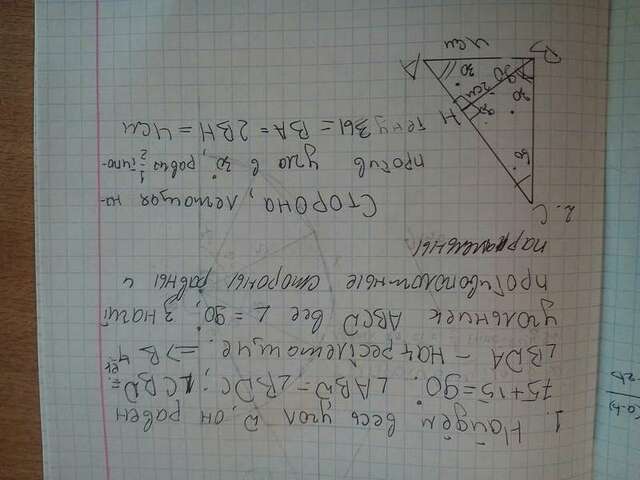 1. Найдём весь угол D, он равен
75+15=90°. ∠ABD=∠BDC; ∠CBD=
∠BDA - накрестлежащие. => В 4ех
угольнике ABCD все ∠=90°, значит
противоположные стороны равны и
параллельны
2. C
Сторона, лежащая на-
против угла в 30°, равна 1/2 гипо-
тенузы = BA = 2BH = 4см
60°
30°
90°
H
2см
30°
A
4см
B
(a-b)
-2b